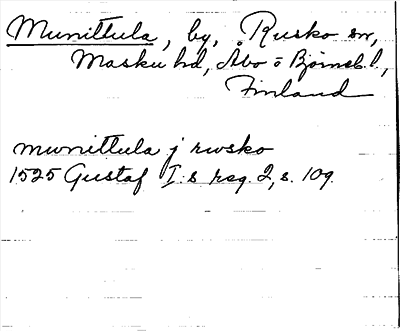 Munittula, by, Rusko sn,
Masku hd, Åbo o Björneb. l.,
Finland
munittula j rwsko
1525 Gustaf I:s reg. 2, s. 109.